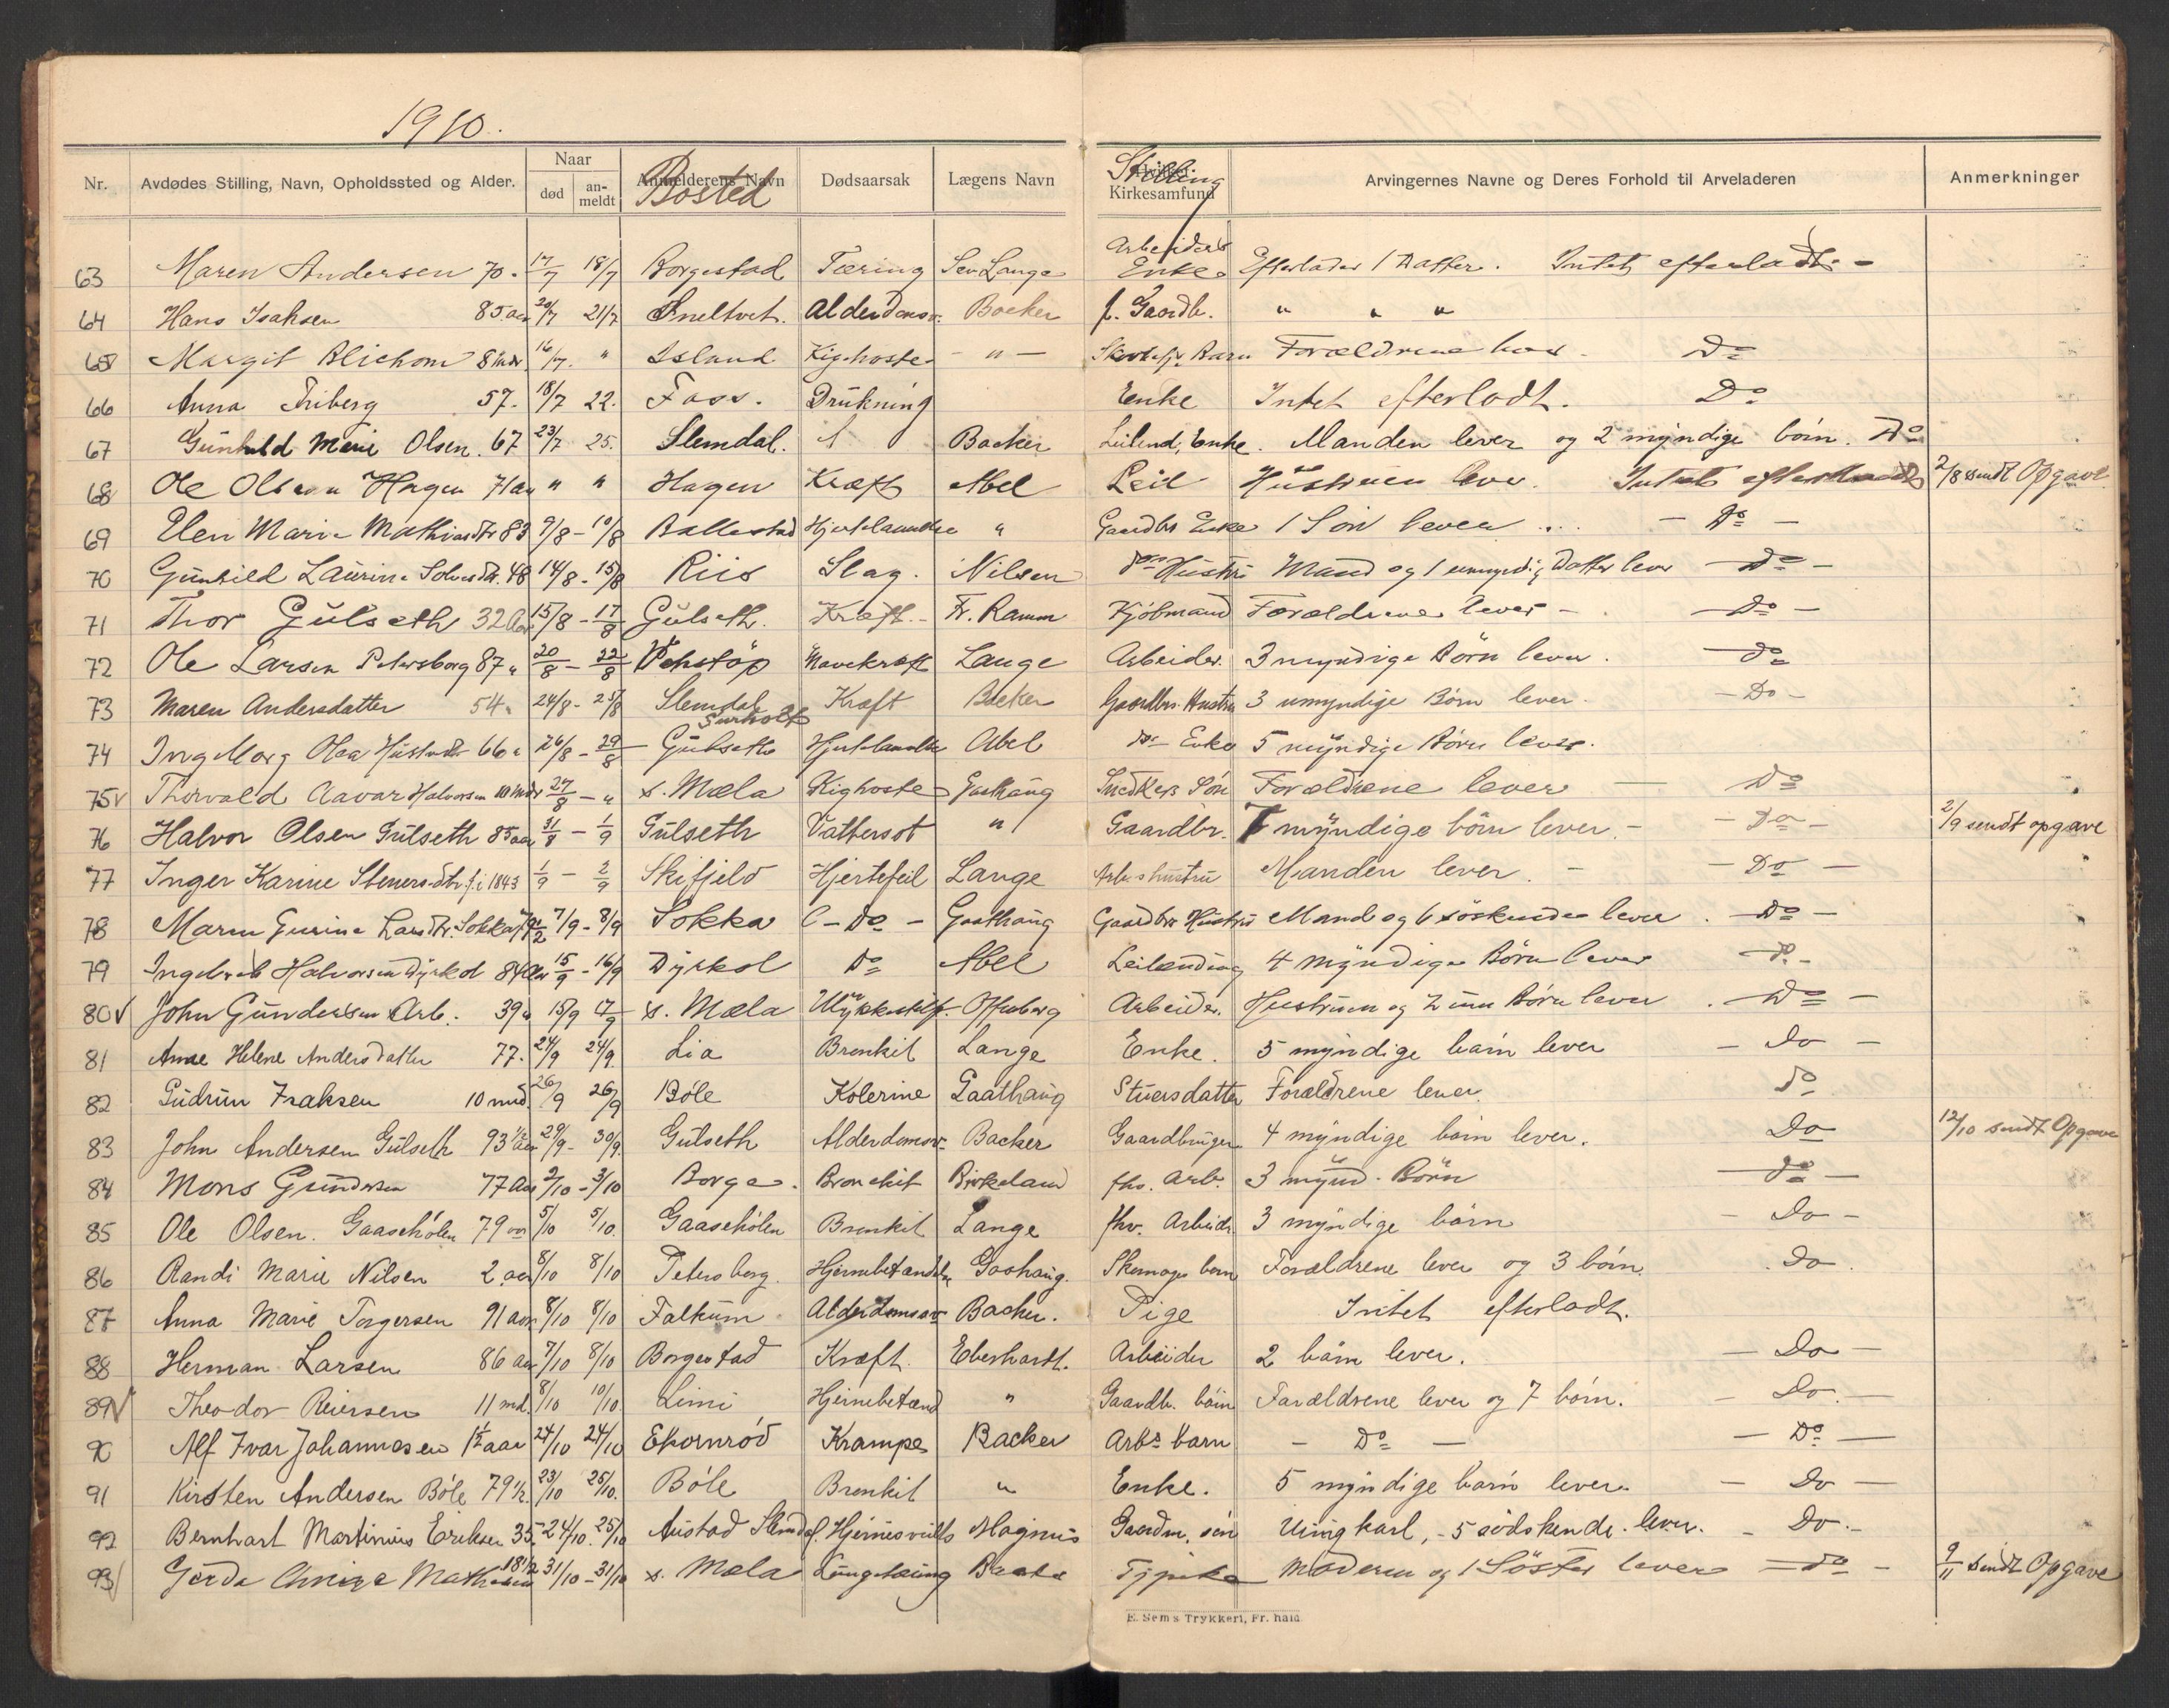 1910.
Nr. Avdødes Stilling, Navn, Opholdssted og Alder. Naar død an-meldt Anmelderens Navn Bosted Dødsaarsak Lægens Navn Stilling Kirkesamfund Arvingernes Navne og Deres Forhold til Arveladeren Anmerkninger
63 Maren Andersen 70. 17/7 18/7 Borgestad Tæring Sev. Lange Arbeiders Enke. Efterlader 1 Datter. Intet efterladt. -
64 Hans Isaksen 85 aar 20/7 21/7 Sneltvet. Alderdomsv. Backer f. Gaardb. " " "
65 Margit Blichom 8 mdr 16/7. " Island Kighoste - " - Barn Forældrene lever. Do
66 Anna Friberg 57. 18/7 22. Foss. Drukning Enke Intet efterladt. Do
67 Gunhild Marie Olsen. 67 23/7 25. Slemdal. Backer Leilend, Enke. Manden lever og 2 myndige börn. Do
68 Ole Olsen Hagen 71 aar " " Hagen Kræft Abel Leil Hustruen lever. Intet efterladt 2/8 sendt Opgave
69 Elen Marie Mathiasdtr 83 9/8 - 10/8 Ballestad Hjertelammelse " Gaardbr Enke 1 Sön lever ... - Do -
70 Gunhild Laurine Solvesdtr. 48 14/8 - 15/8 Riis Slag. Nilsen do Hustru Mand og 1 umyndig Datter lever - Do -
71 Thor Gulseth 32 Aar 15/8 - 17/8 Gulseth. Kræft. - Fr. Ramm Kjöbmand Forældrene lever - - Do -
72 Ole Larsen Petersborg 87 " 20/8 - 22/8 Venstöp Mavekræft Lange Arbeider. 3 myndige Börn lever. - do
73 Maren Andersdatter 54 " 24/8 - 25/8 Slemdal Kræft Backer Gaardbrs. Hustru 3 umyndige Börn lever. - Do -
74 Ing. Marg. Olea 66 " 26/8 - 29/8 Gulseth Hjertelammelse Abel do Enke 5 myndige Börn lever.
75 v Thorvald Aavar Halvorsen 10 mdr 27/8 - " s. Mæla Kighoste Gaathaug Snedkers Sön Forældrene lever - Do
76 Halvor Olsen Gulseth 85 aar 31/8 - 1/9 Gulseth Vattersot " Gaardbr. 7 myndige börn lever. - - Do - 2/9 sendt opgave
77 Inger Karine Stenersdtr. f. i 1843 1/9 - 2/9 Skifjeld Hjertefeil Lange Arbs hustru Manden lever. - - Do -
78 Maren Gurine Larsdtr. Sokka 7/9 - 8/9 Sokka - Do - Gaathaug Gaardbrs Hustru Mand og 6 söskende lever. - Do -
79 Ingebret Halvorsen Dyrkol 84 Aar 15/9 - 16/9 Dyrkol Do Abel Leilending 4 myndige Börn lever - Do -
80 v John Gundersen Arb. 39 " 15/9 17/9 s. Mæla Ulykkestilf. Offenberg Arbeider. Hustruen og 2 um Börn lever. - Do -
81 Anne Helene Andersdatter 77. 24/9 24/9. Lia Bronkit Lange Enke. 5 myndige barn lever - Do -
82 Gudrun Isaksen 10 mnd. 26/9 26/9 Böle Kolerine Gaathaug Stuersdatter Forældrene lever. do
83 John Andersen Gulseth 93 1/2 aar 29/9 - 30/9. Gulseth Alderdomsv. Backer Gaardbruger 4 myndige barn lever. Do 12/10 sendt Opgave
84 Mons Gundersen 77 Aar 2/10 - 3/10 Borge. Bronchit Birkeland fhv. Arb. 3 mynd. Börn - do -
85 Ole Olsen. Gaasehölen 79 aar 5/10 5/10. Gaasehölen Bronkit Lange fhv. Arbeidr. 3 myndige barn - Do -
86 Randi Marie Nilsen 2 aar 8/10 8/10 Petersborg. Hjernebetændelse Gaahaug. Skomager barn Forældrene lever og 3 börn. Do.
87 Anna Marie Torgersen 91 aar 8/10 8/10 Falkum Alderdomsv Backer. Pige Intet efterladt.
88 Herman Larsen 86 aar 7/10 8/10 Borgestad Kræft. Eberhardt. Arbeider 2 barn lever. - Do -
89 v Theodor Reiersen 11 md. 8/10 10/10. Limi Hjernebetænd " Gaardb. barn Forældrene lever og 7 börn. - Do. -
90 Alf Ivar Johannesen 1 1/2 aar 24/10 24/10 Ekornröd Krampe Backer Arbs barn - Do - - Do -
91 Kirsten Andersen Böle 79 1/2. 23/10 25/10. Böle Bronkit " Enke. 5 myndige barn lever. - Do -
92 Bernhart Martinius Eriksen 35. 24/10. 25/10 Austad Slemdal. Magnus Gaardm. sön Ungkarl, - 5 södskende lever. - Do. -
93 Gerda Mathisen 18 1/2 31/10 - 31/10 s. Mæla Backer Moderen og 1 Söster lever - do - 9/11 sendt Opgave
E. Sem's Trykkeri, Fr. hald